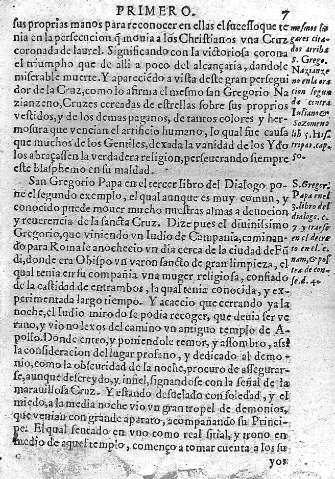 PRIMERO. 7
sus proprias manos para reconocer en ellas el sucesso que te
nia en la persecucion q̃ mouia a los Christianos vna Cruz,
coronada de laurel. Significando con la victoriosa corona
el triumpho que de alli a poco del alcançaria, dandole
miserable muerte. Y aparecido a vista deste gran persegui
dor de la Cruz, como lo afirma el mesmo san Gregorio Na
zianzeno, Cruzes cercadas de estrellas sobre sus proprios
vestidos, y de los demas paganos, de tantos colores y her-
mosura que vencian el artificio humano, lo qual fue causa
que muchos de los Gentiles, dexada la vanidad de los Ydo
los abraçassen la verdadera religion, perseuerando siempre
este blasphemo en su maldad.
San Gregorio Papa en el tercer libro del Dialogo po-
ne el segundo exemplo, el qual aunque es muy comun, y
conocido puede mouer mucho nuestras almas a deuocion
y reuerencia de la sancta Cruz. Dize pues el diuinissimo
Gregorio, que viniendo vn Iudio de Campania, caminan-
do para Roma se anochecio vn dia cerca de la ciudad de Fũ
di, donde era Obispo vn varon sancto de gran limpieza, el
qual tenia en su compañia vna muger religiosa, confiado
de la castidad de entrambos, la qual tenia conocida, y ex-
perimentada largo tiempo. Y acaecio que cerrando ya la
noche, el Iudio miro do se podia recoger, que deuia ser ve
rano, y vio no lexos del camino vn antiguo templo de A-
pollo. Donde entro, y poniendole temor, y assombro, assi
la consideracion del lugar profano, y dedicado al demo-
nio, como la obscuridad de la noche, procuro de assegurar-
se, aunque descreydo, y infiel, signandose con la señal de la
marauillosa Cruz. Y estando desuelado con soledad, y el
miedo, a la media noche vio vn gran tropel de demonios,
que venian con grande aparato, acompañando su Princi-
pe. El qual sentado en vno como real sitial, y trono en
medio de aquel templo, començo a tomar cuenta a los su
yos
mesmos lu
gares cita
dos arriba
S. Grego.
Nazanze
no en la ora
cion segun
da contra
Iulianum
Sozomeno
lib 5. His.
tripar. cap.
50.
S. Gregor.
Papa en el
dialog. c.